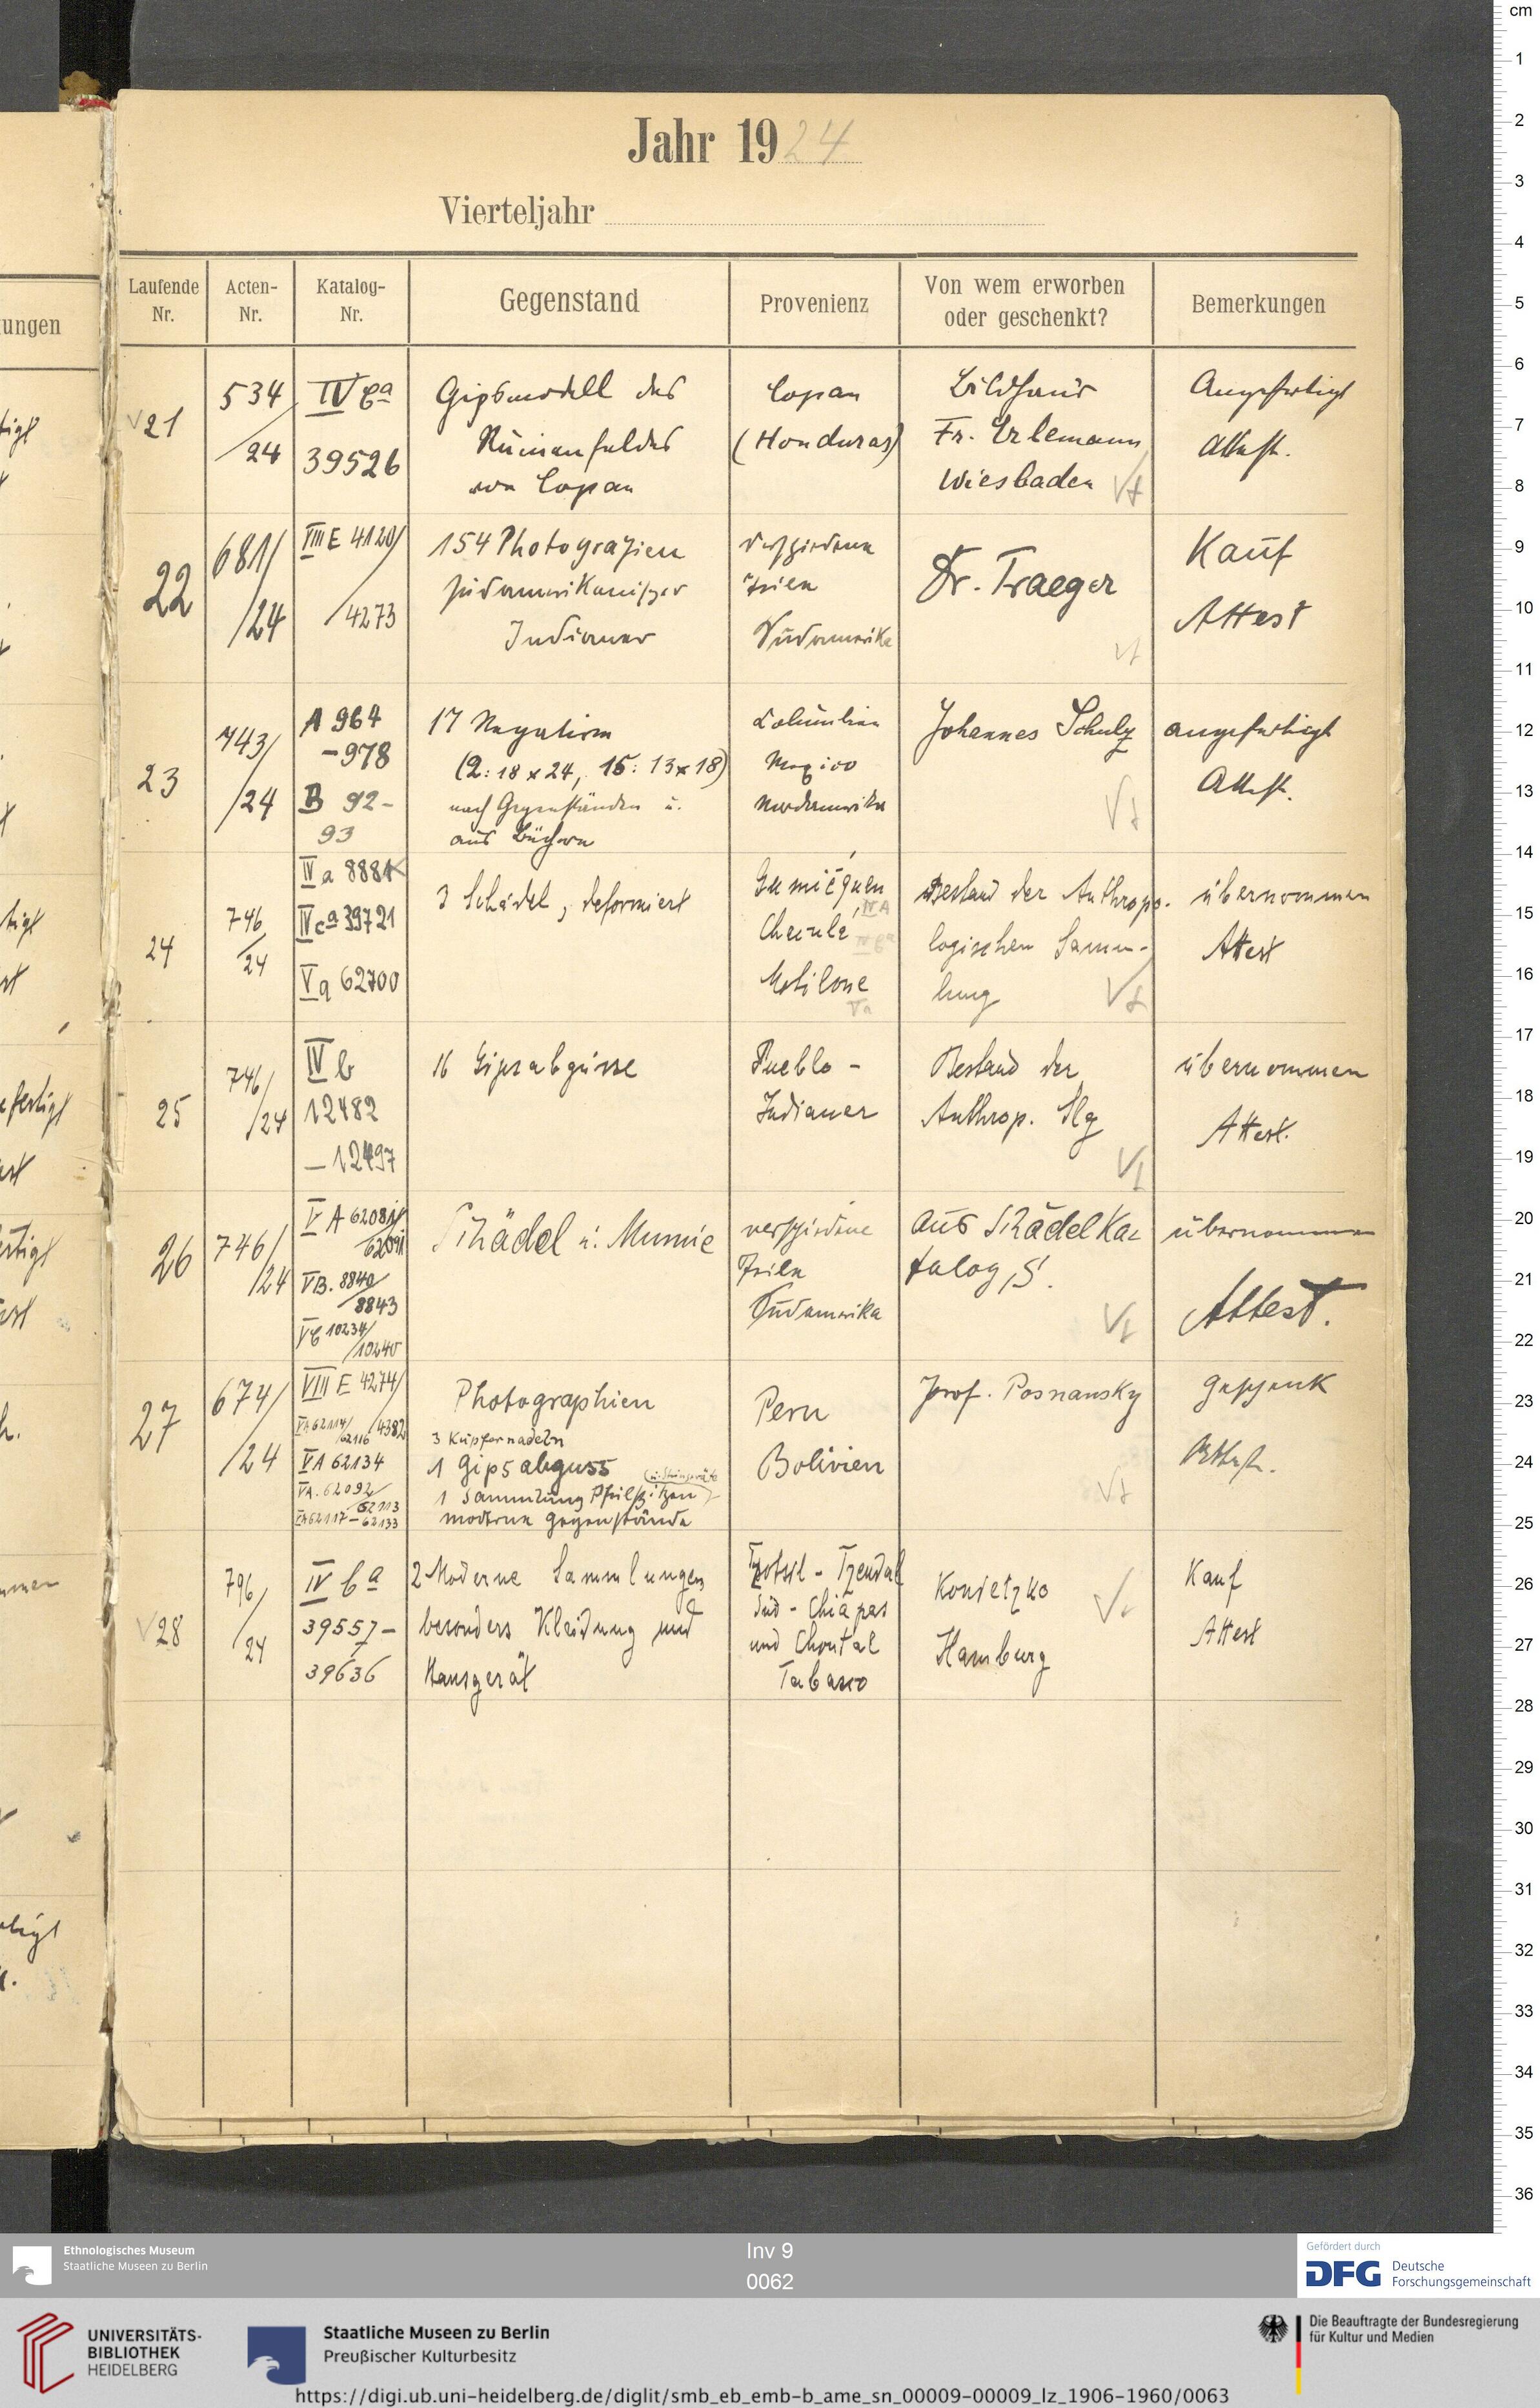 Jahr 1924
Vierteljahr
Laufende Nr.
Acten-Nr.
Katalog-Nr.
Gegenstand
Provenienz
Von wem erworben oder geschenkt?
Bemerkungen
21
534/24
IV Ca
39526
Gipsmodell des
Ruinenfeldes
von Copan
Copan
(Honduras)
Bildhauer
Fr. Erlemann
Wiesbaden
Angefertigt
Attest.
22
681/
/24
VIII E 4120/
/4273
154 Photografien
südamerikanischer
Indianer
Verschiedene
Teile
Südamerika
Dr. Traeger
Kauf
Attest
23
743/
/24
A 964
-978
B 92-
93
17 Negative
(2: 18 x 24, 15: 13x18)
nach Gegenständen u.
aus Büchern
Columbien
Mexico
Nordamerika
Johannes Schulz
angefertigt
Attest.
24
746/24
IV a 8881
IV ca 39721
V a 62700
3 Schädel, deformiert
IV A
Motilone
Va
Bestand der Anthropo-
logischen Samm-
lung
übernommen
Attest
25
746/
/24
IV b
12482
—12497
16 Gipsabgüsse
Pueblo -
Indianer
Bestand der
Anthrop. Slg
übernommen
Attest.
26
746/
/24
V A 62081/
62091
VB. 8840/
8843
VC 10234/
/10240
Schädel u. Mumie
verschiedene
Teile
Südamerika
aus Schädel Ka-
talog S.
übernommen
Attest.
27
674/
/24
VIII E 4274/
/4382
VA 62114/
62116
VA 62134
VA. 62092/
62113
VA 62117-62133
Photographien
3 Kupfernadeln
1 Gipsabguss
(u. Steingeräte)
1 Sammlung Pfeilspitzen
moderne Gegenstände
Peru
Bolivien
Prof. Posnansky
Geschenk
Attest.
28
796/
/24
IV Ca
39557-
39636
2 Moderne Sammlungen
besonders Kleidung und
Hausgerät
Tzotzil - Tzendal
Süd - Chiapas
und Chontal
Tabasco
Konietzko
Hamburg
Kauf
Attest
Ethnologisches Museum
Staatliche Museen zu Berlin
Inv 9
0062
Gefördert durch
DFG Deutsche
Forschungsgemeinschaft
UNIVERSITÄTS-
BIBLIOTHEK
HEIDELBERG
Staatliche Museen zu Berlin
Preußischer Kulturbesitz
Die Beauftragte der Bundesregierung
für Kultur und Medien
https://digi.ub.uni-heidelberg.de/diglit/smb_eb_emb-b_ame_sn_00009-00009_lz_1906-1960/0063
cm
1
2
3
4
5
6
7
8
9
10
11
12
13
14
15
16
17
18
19
20
21
22
23
24
25
26
27
28
29
30
31
32
33
34
35
36